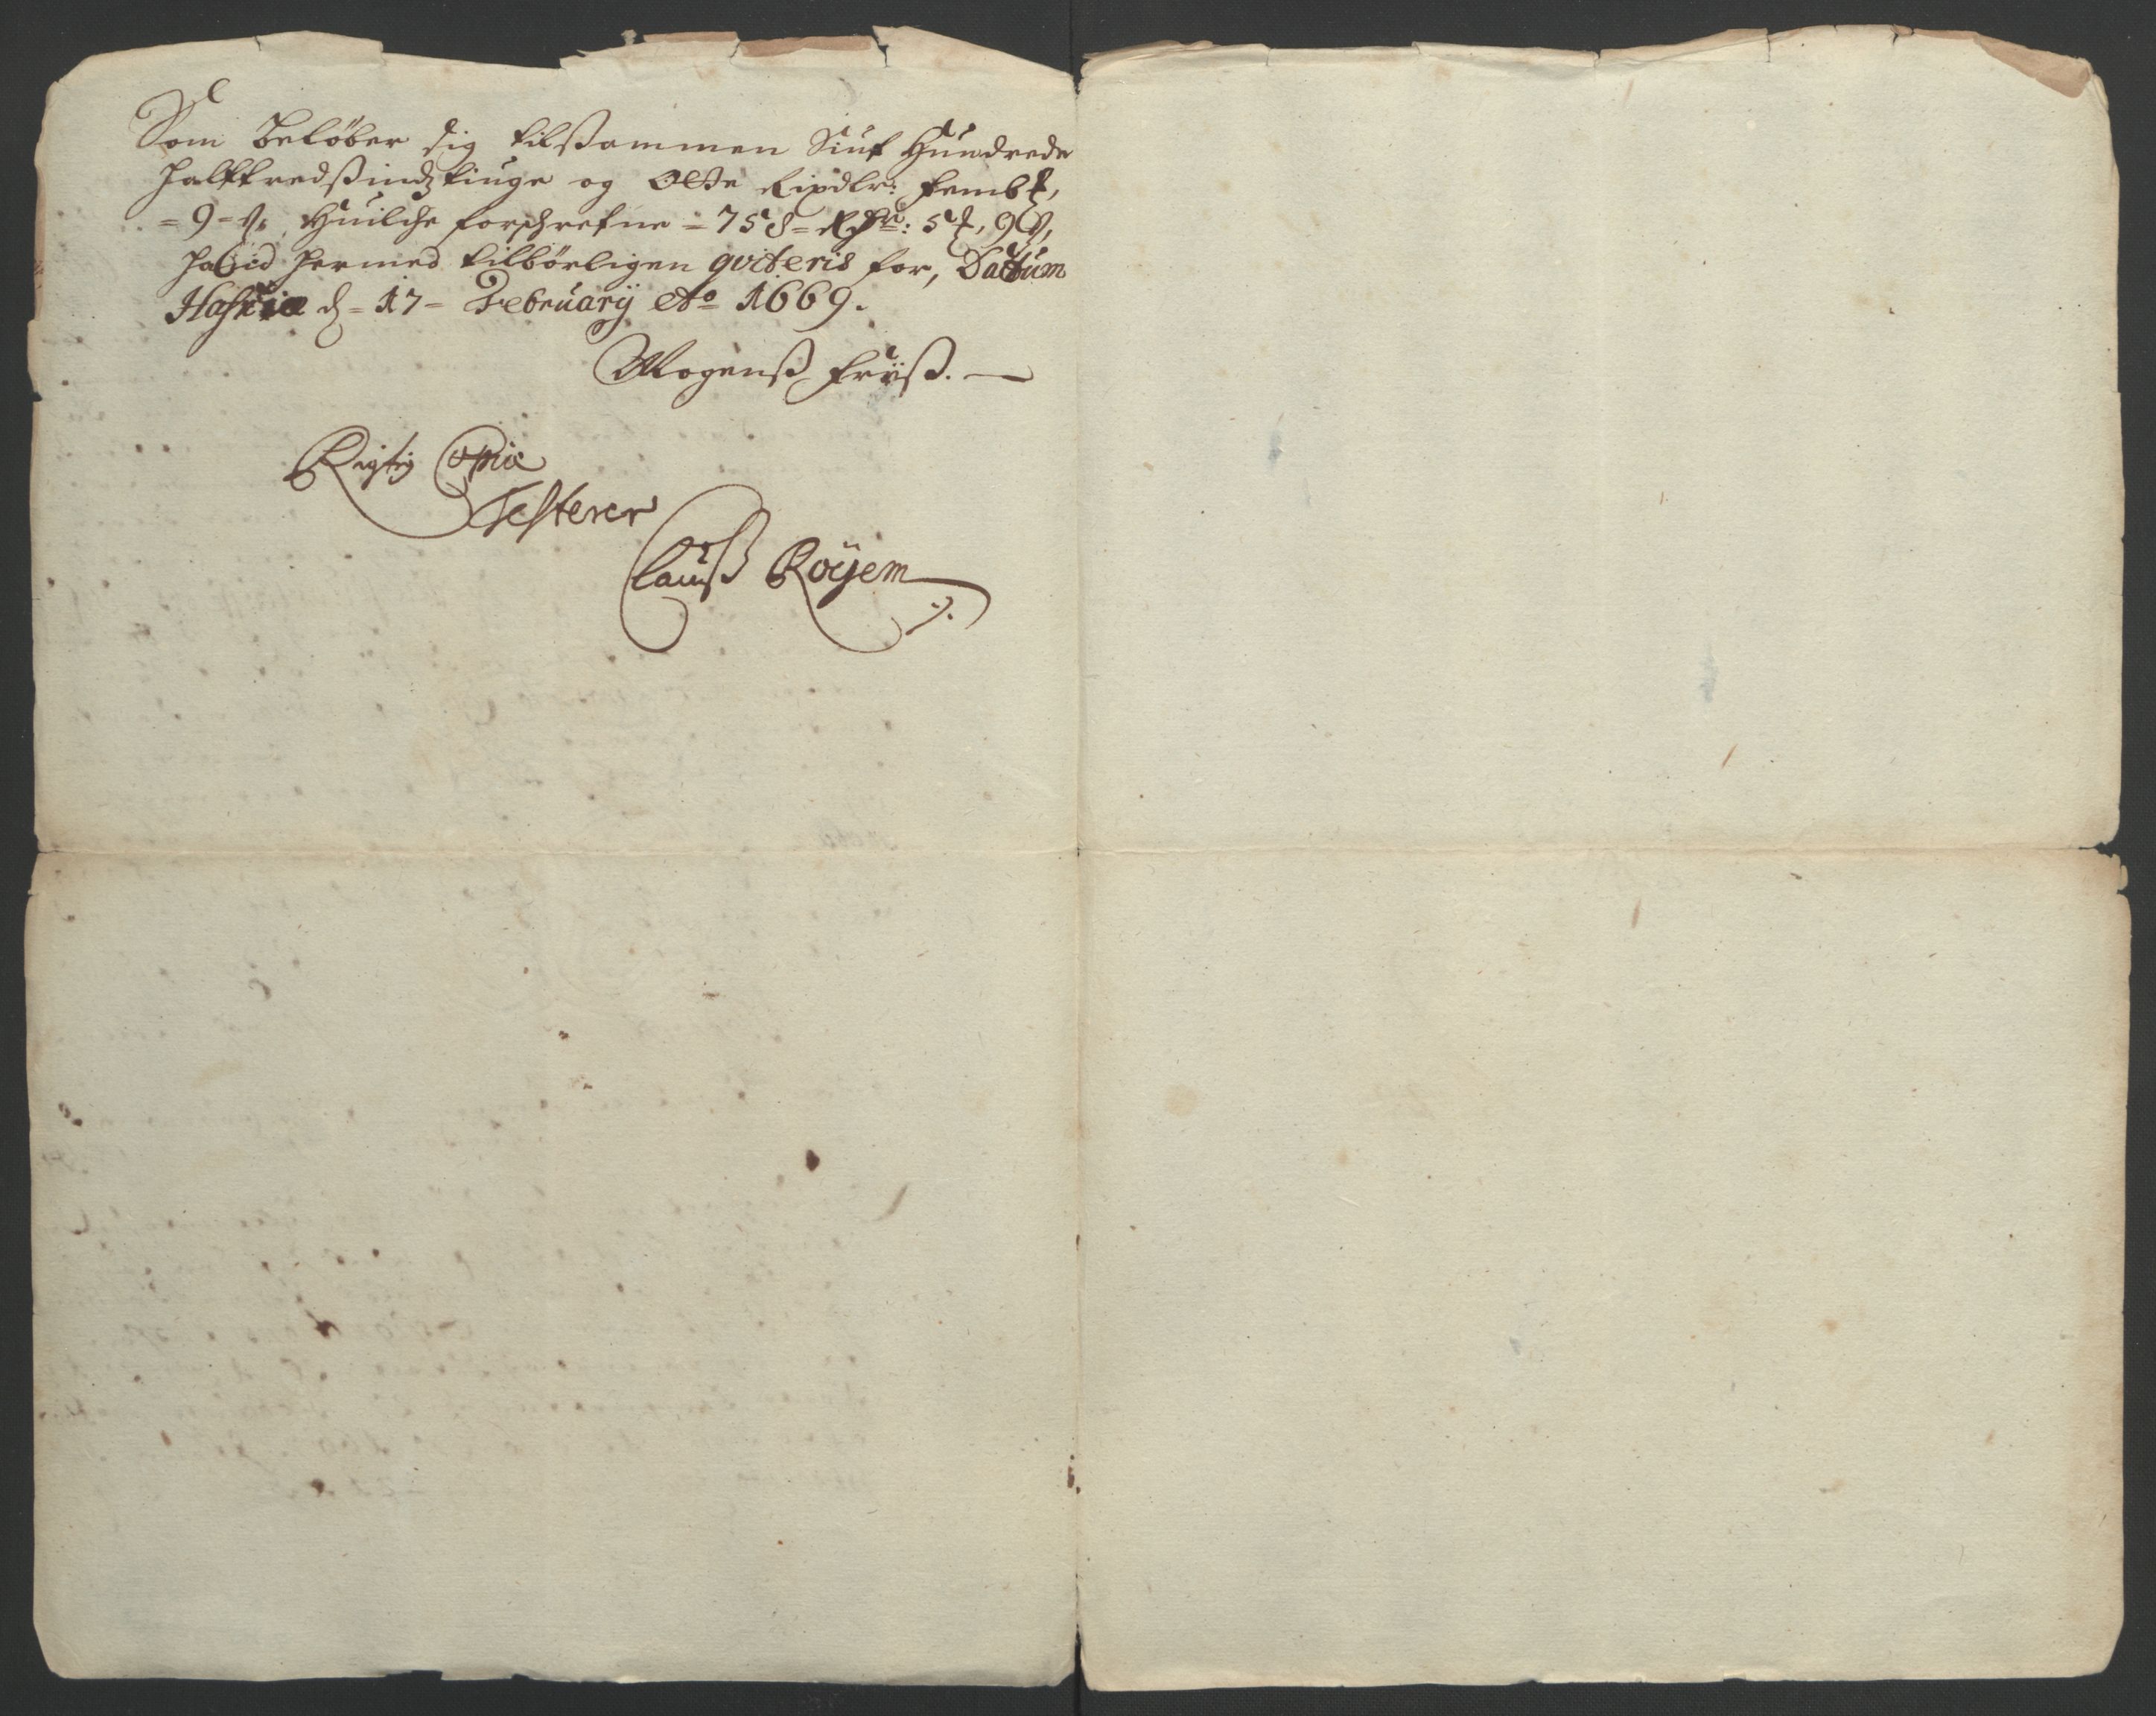 Som Beløber sig tilsammen Siuf Hundrede
halftredsindztiuge og Otte Rixdlr: fembt,
= 9 = β, Huilche forschrefne = 758 = Rdr: 5 ꝑ, 9 β,
hermed tilbørligen qviteris for, Datum
Hafniæ d = 17 = February Ao 1669.
Mogenß Frÿß.
Rigtig Copie
Testerer
Clauß Röyem